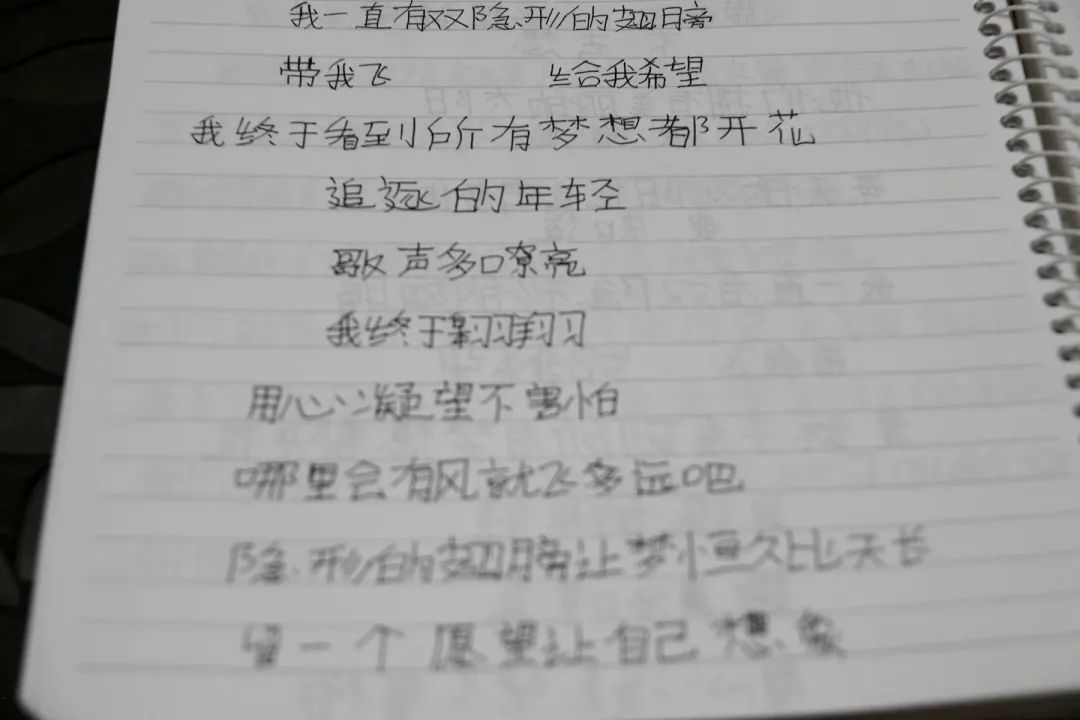 我一直有双隐形的翅膀
带我飞 给我希望
我终于看到所有梦想都开花
追逐的年轻
歌声多嘹亮
我终于翱翔
用心凝望不害怕
哪里会有风就飞多远吧
隐形的翅膀让梦恒久比天长
留一个愿望让自己想象